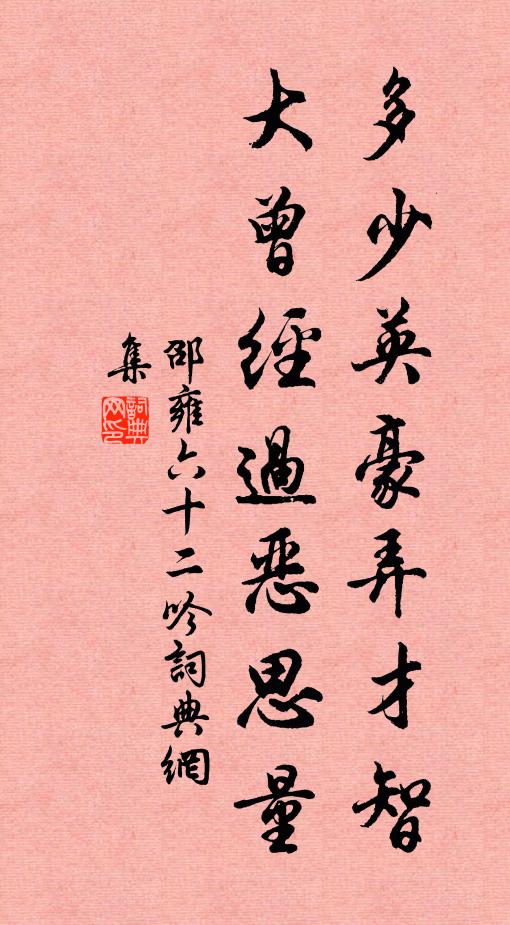 多少英豪弄才智
大曾經過惡思量
邵雍六十二吟詞典網
集
詞典
网印